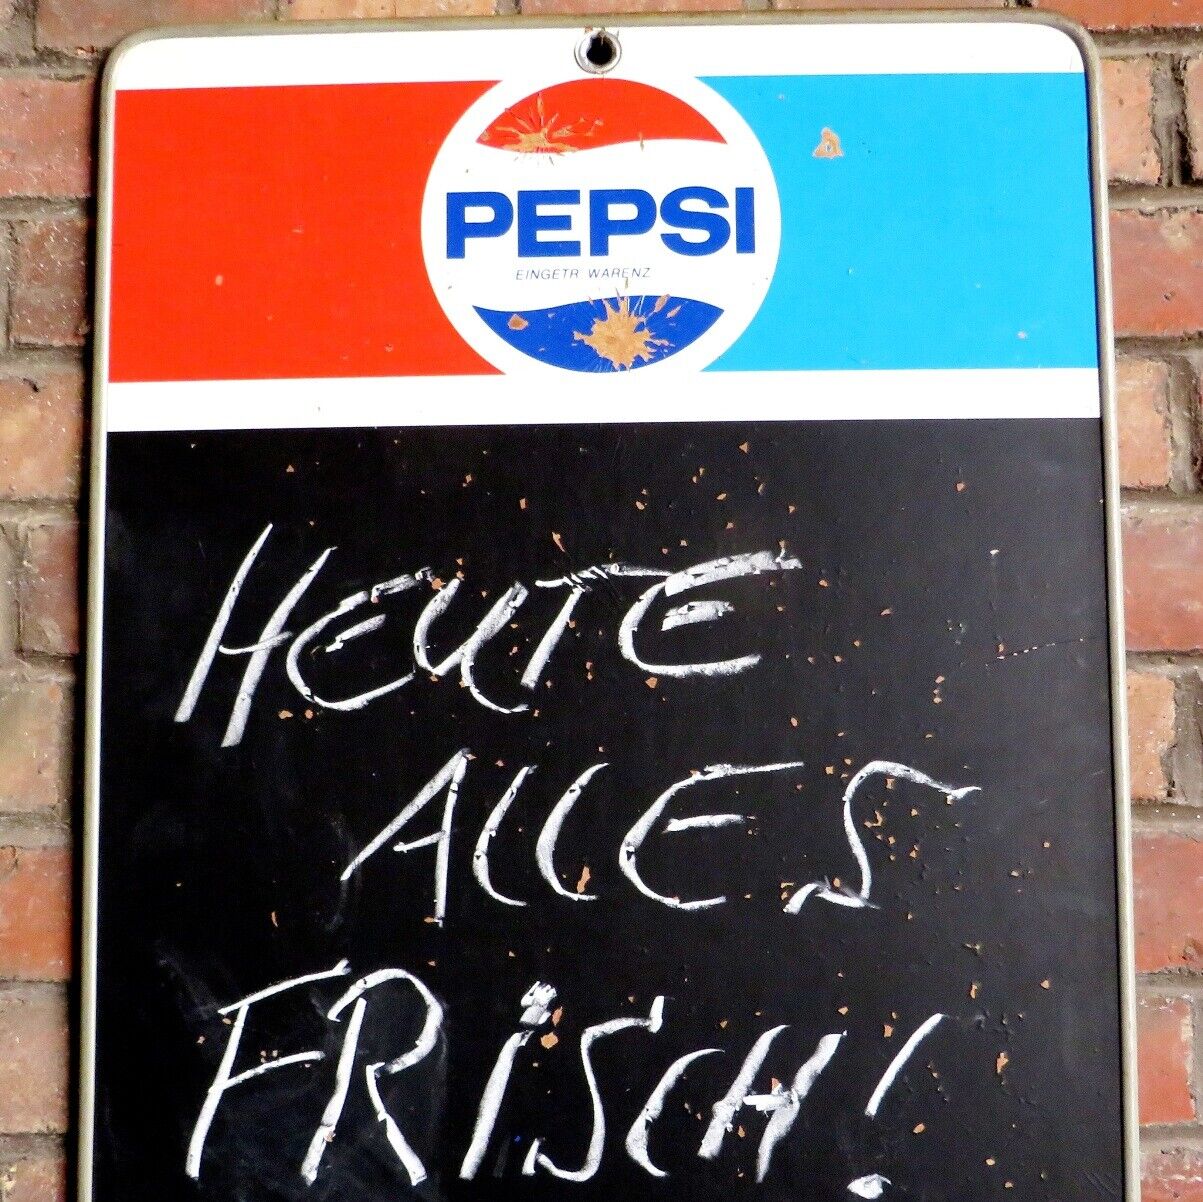 PEPSI
EINGETR. WARENZ
HEUTE
ALLES
FRiSCH!